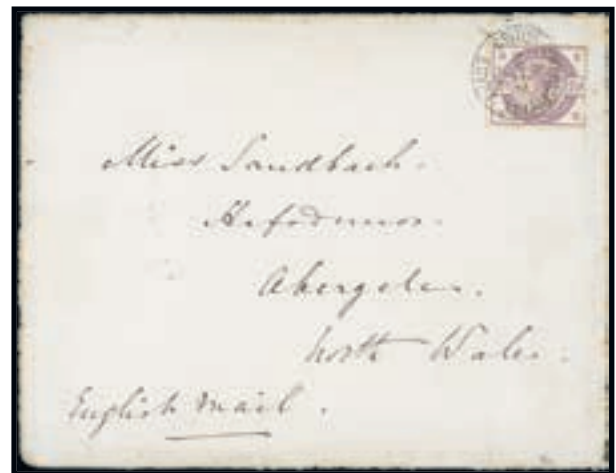 Miss Sandbach.
Hafodunos.
Abergele.
North Wales.
English Mail.